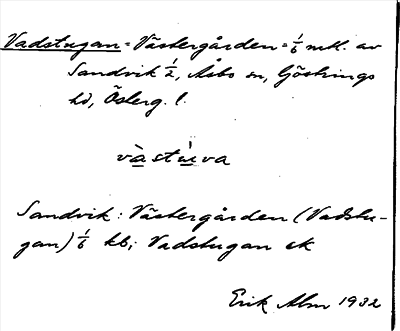 Vadstugan = Västergården = 1/6 mtl. av
Sandvik 1/2, Åsbo sn, Göstrings
hd, Österg. l.
vàstu̇va
Sandvik: Västergården (Vadstu-
gan) 1/6 kb; Vadstugan ek
Erik Alm 1932